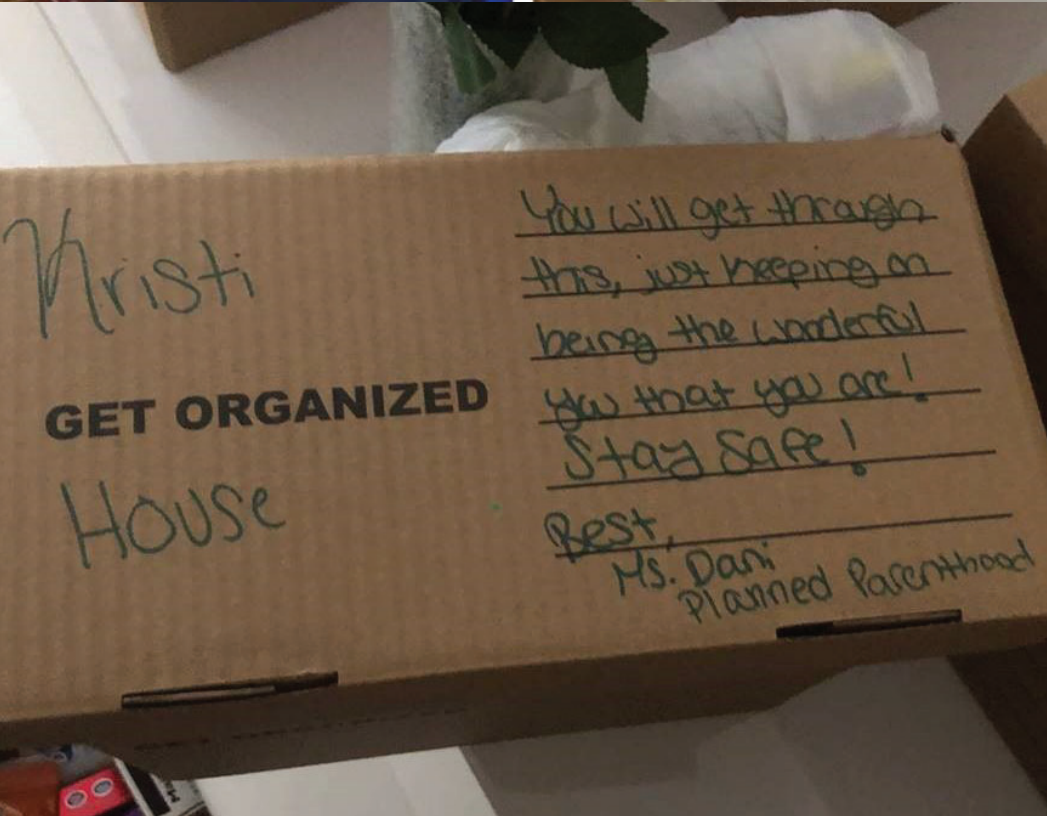 Kristi
GET ORGANIZED
House
You will get through
this, just keeping on
being the wonderful
you that you are!
Stay Safe!
Best,
Ms. Dani
Planned Parenthood